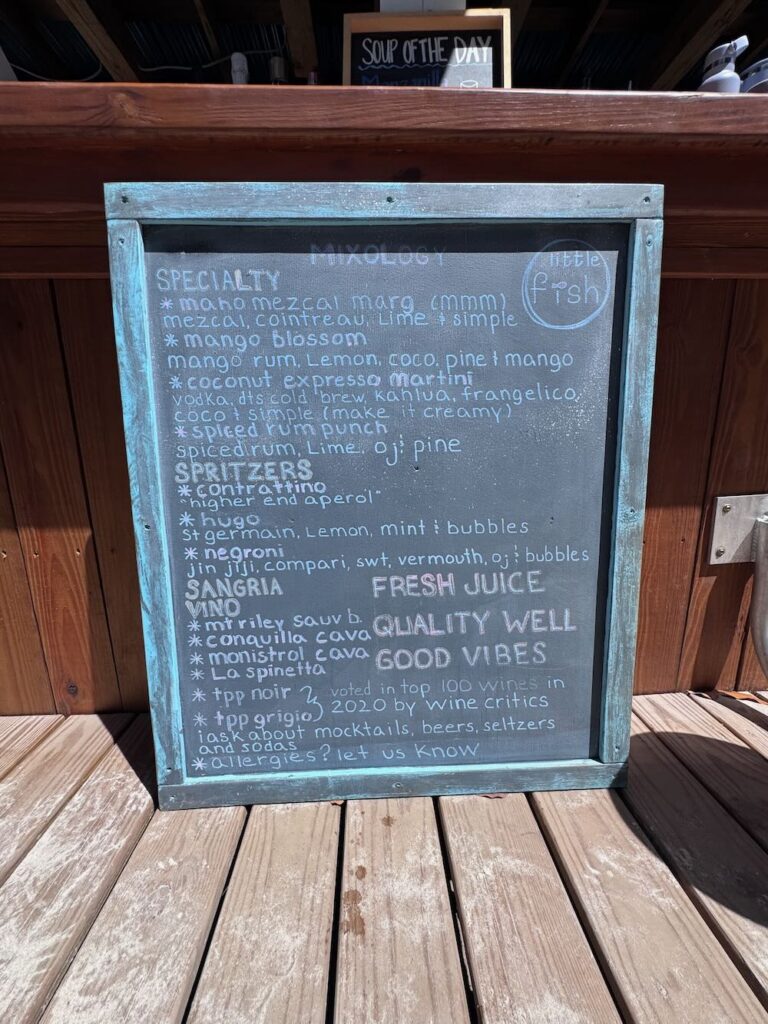 SOUP OF THE DAY
MIXOLOGY
little
fish
SPECIALTY
* maho mezcal marg (mmm)
mezcal, cointreau, Lime & simple
* mango blossom
mango rum, Lemon, coco, pine & mango
* coconut expresso martini
vodka, dts cold brew, kahlua, frangelico,
coco & simple (make it creamy)
* spiced rum punch
spiced rum, Lime, oj & pine
SPRITZERS
* contrattino
"higher end aperol"
* hugo
St germain, Lemon, mint & bubbles
* negroni
jin jiji, compari, swt, vermouth, oj & bubbles
SANGRIA
VINO
* mt riley sauv b.
* conquilla cava
* monistrol cava
* La spinetta
* tpp noir
* tpp grigio
voted in top 100 wines in
2020 by wine critics
FRESH JUICE
QUALITY WELL
GOOD VIBES
ask about mocktails, beers, seltzers
and sodas
* allergies? let us know